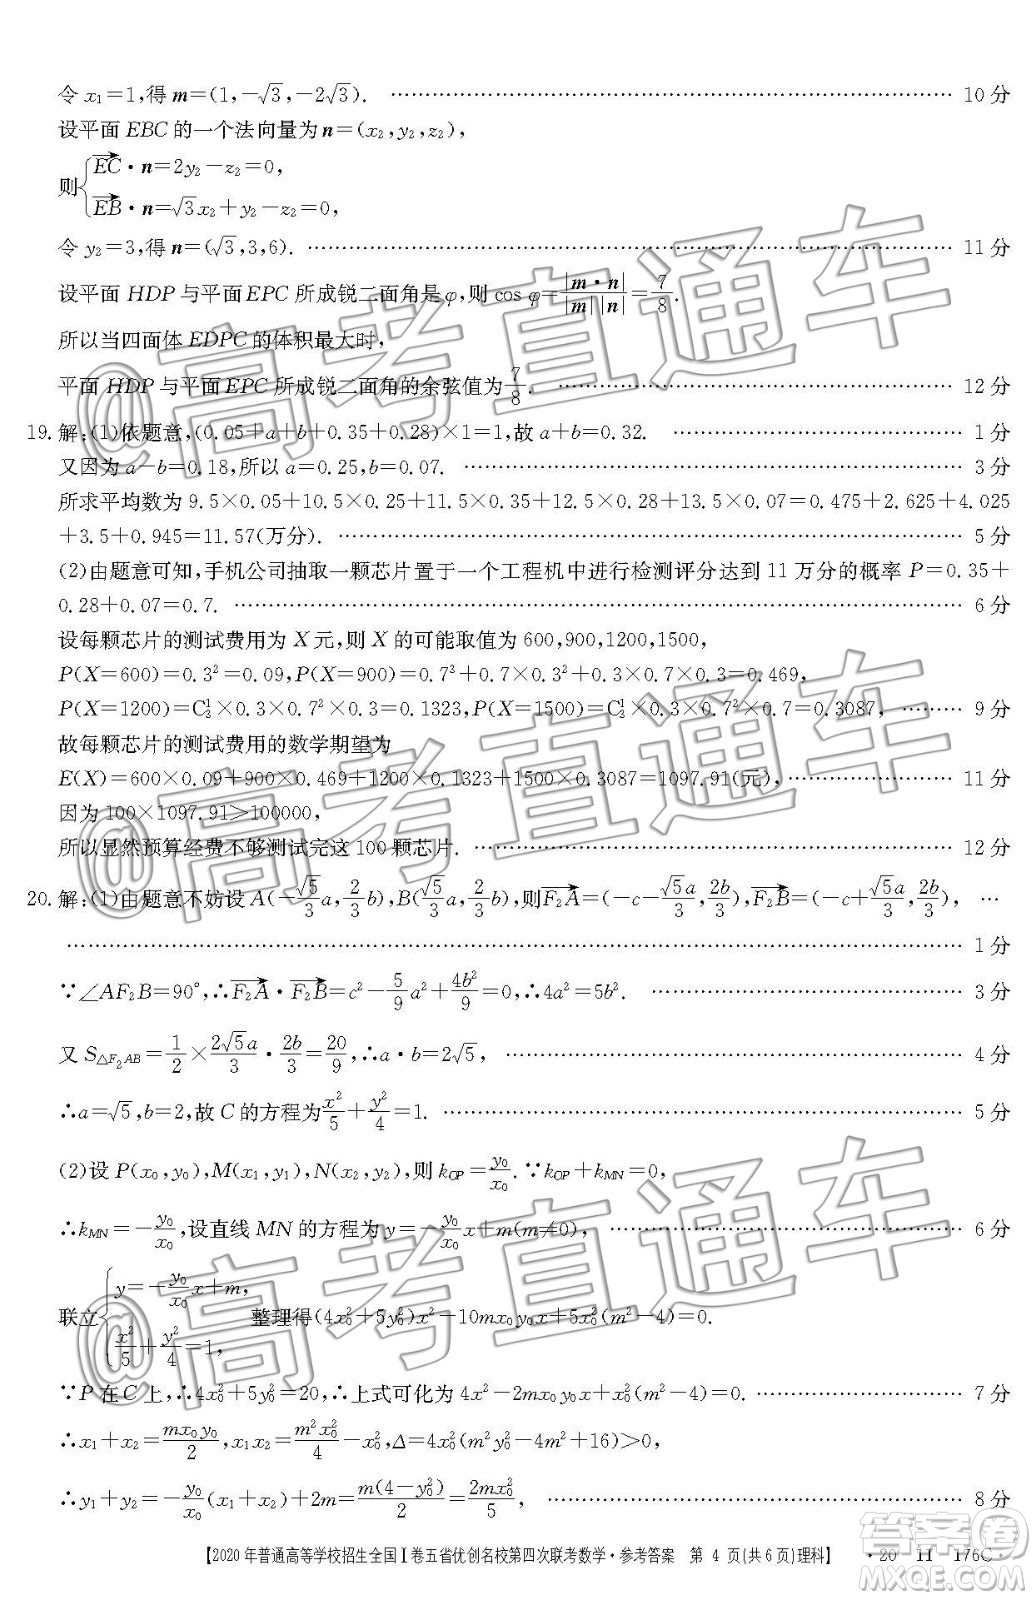 令 x₁=1,得 m=(1,-√3,-2√3). ………… 10 分
设平面 EBC 的一个法向量为 n=(x₂,y₂,z₂),
则{EC→·n=2y₂-z₂=0,
EB→·n=√3x₂+y₂-z₂=0,
令 y₂=3,得 n=(√3,3,6). ………… 11 分
设平面 HDP 与平面 EPC 所成锐二面角是 φ,则 cos φ=|m·n|/|m||n|=7/8.
所以当四面体 EDPC 的体积最大时,
平面 HDP 与平面 EPC 所成锐二面角的余弦值为 7/8. ………… 12 分
19. 解:(1)依题意,(0.05+a+b+0.35+0.28)×1=1,故 a+b=0.32. ………… 1 分
又因为 a-b=0.18,所以 a=0.25,b=0.07. ………… 3 分
所求平均数为 9.5×0.05+10.5×0.25+11.5×0.35+12.5×0.28+13.5×0.07=0.475+2.625+4.025
+3.5+0.945=11.57(万分). ………… 5 分
(2)由题意可知,手机公司抽取一颗芯片置于一个工程机中进行检测评分达到 11 万分的概率 P=0.35+
0.28+0.07=0.7. ………… 6 分
设每颗芯片的测试费用为 X 元,则 X 的可能取值为 600,900,1200,1500,
P(X=600)=0.3²=0.09,P(X=900)=0.7³+0.7×0.3²+0.3×0.7×0.3=0.469,
P(X=1200)=C₃¹×0.3×0.7²×0.3=0.1323,P(X=1500)=C₃¹×0.3×0.7²×0.7=0.3087, ……… 9 分
故每颗芯片的测试费用的数学期望为
E(X)=600×0.09+900×0.469+1200×0.1323+1500×0.3087=1097.91(元), ………… 11 分
因为 100×1097.91>100000,
所以显然预算经费不够测试完这 100 颗芯片. ………… 12 分
20. 解:(1)由题意不妨设 A(-√5/3a,2/3b),B(√5/3a,2/3b),则F₂A→=(-c-√5a/3,2b/3),F₂B→=(-c+√5a/3,2b/3), …
………… 1 分
∵∠AF₂B=90°,∴F₂A→·F₂B→=c²-5/9a²+4b²/9=0,∴4a²=5b². ………… 3 分
又 S△F₂AB=1/2×2√5a/3·2b/3=20/9,∴a·b=2√5, ………… 4 分
∴a=√5,b=2,故 C 的方程为x²/5+y²/4=1. ………… 5 分
(2)设 P(x₀,y₀),M(x₁,y₁),N(x₂,y₂),则 kOP=y₀/x₀.∵kOP+kMN=0,
∴kMN=-y₀/x₀,设直线 MN 的方程为 y=-y₀/x₀x+m(m≠0), ………… 6 分
联立{y=-y₀/x₀x+m,
x²/5+y²/4=1, 整理得(4x₀²+5y₀²)x²-10mx₀y₀x+5x₀²(m²-4)=0.
∵P 在 C 上,∴4x₀²+5y₀²=20,∴上式可化为 4x²-2mx₀y₀x+x₀²(m²-4)=0. ………… 7 分
∴x₁+x₂=mx₀y₀/2,x₁x₂=m²x₀²/4-x₀²,Δ=4x₀²(m²y₀²-4m²+16)>0,
∴y₁+y₂=-y₀/x₀(x₁+x₂)+2m=m(4-y₀²)/2=2mx₀²/5, ………… 8 分
【2020 年普通高等学校招生全国Ⅰ卷五省优创名校第四次联考数学·参考答案 第 4 页(共 6 页)理科】 ·20-11-176C·
@高考直通车
@高考直通车
@高考直通车
答案圈
MXQE.COM